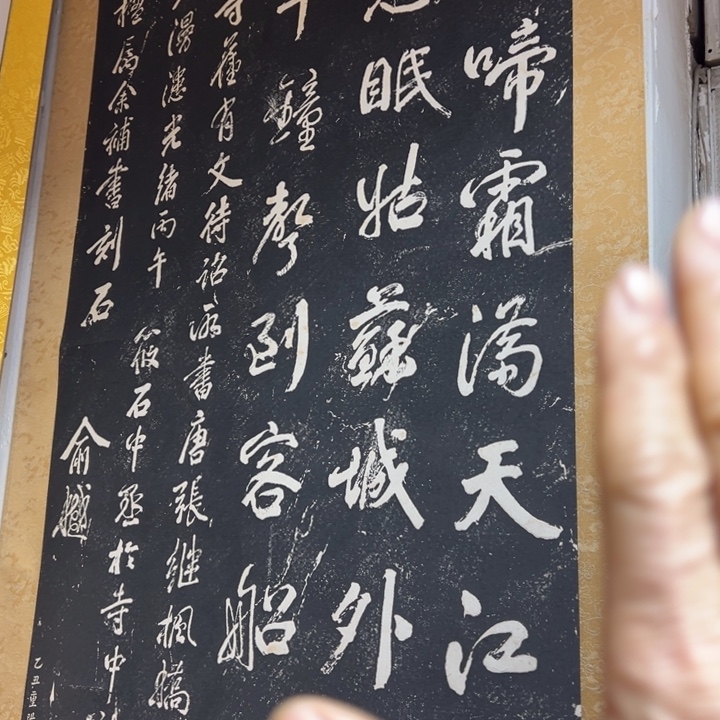 啼霜滿天江
眠姑蘇城外
鐘聲到客船
寺舊有文待詔所書唐張繼楓橋
漫漶光緒丙午筱石中丞於寺中
楹屬余補書刻石
俞樾
乙丑重